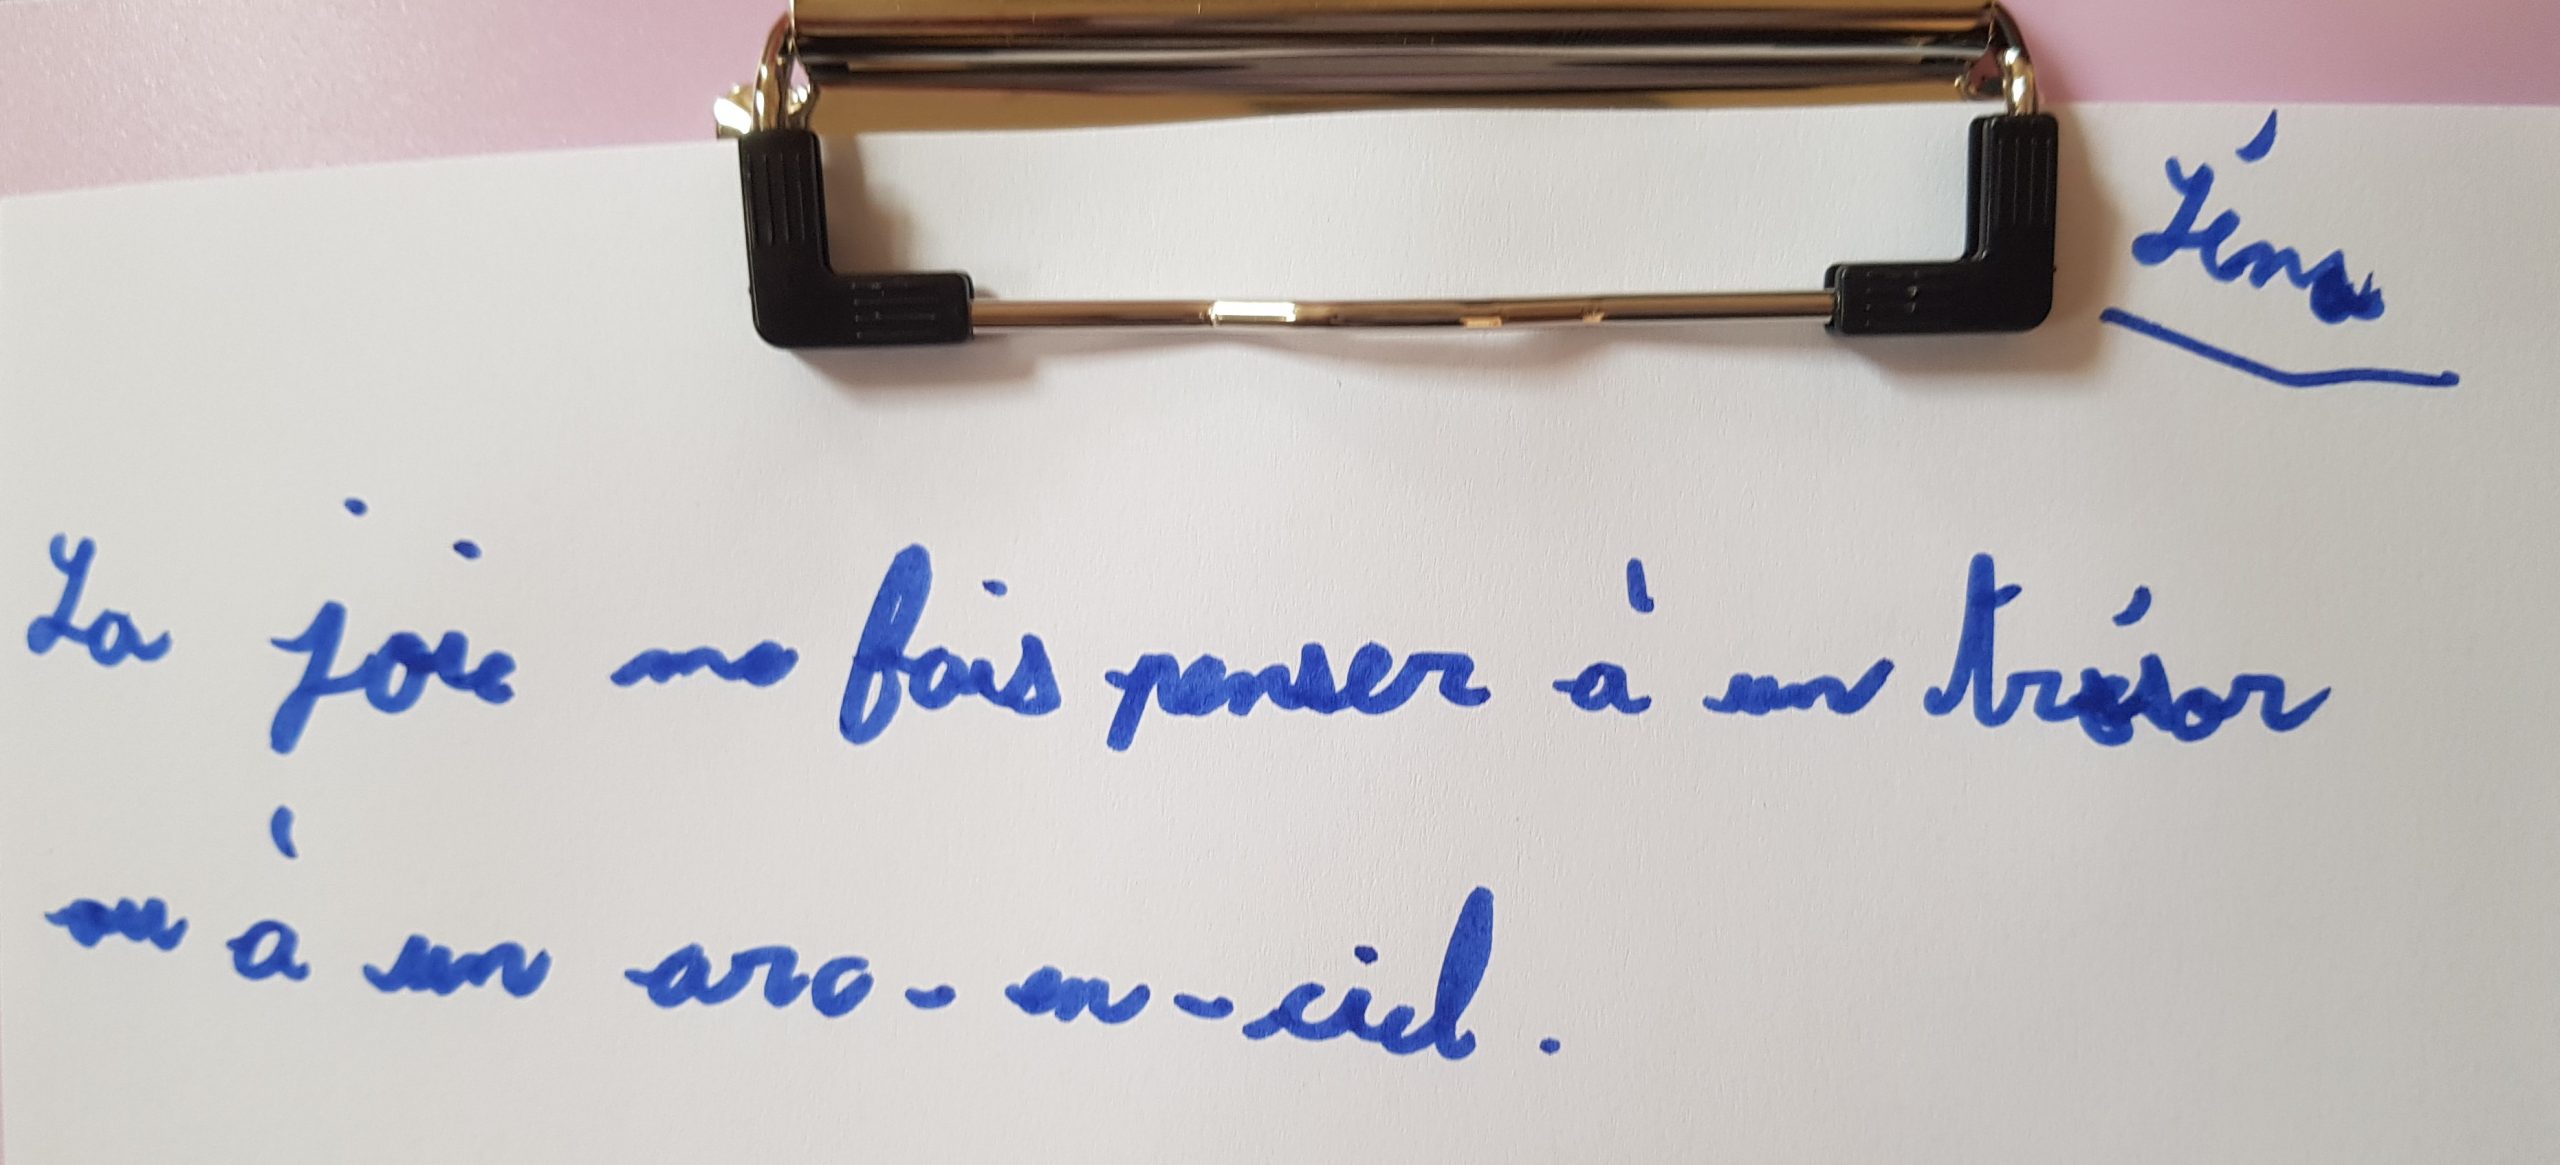 Léna
La joie me fais penser à un trésor
ou à un arc-en-ciel.